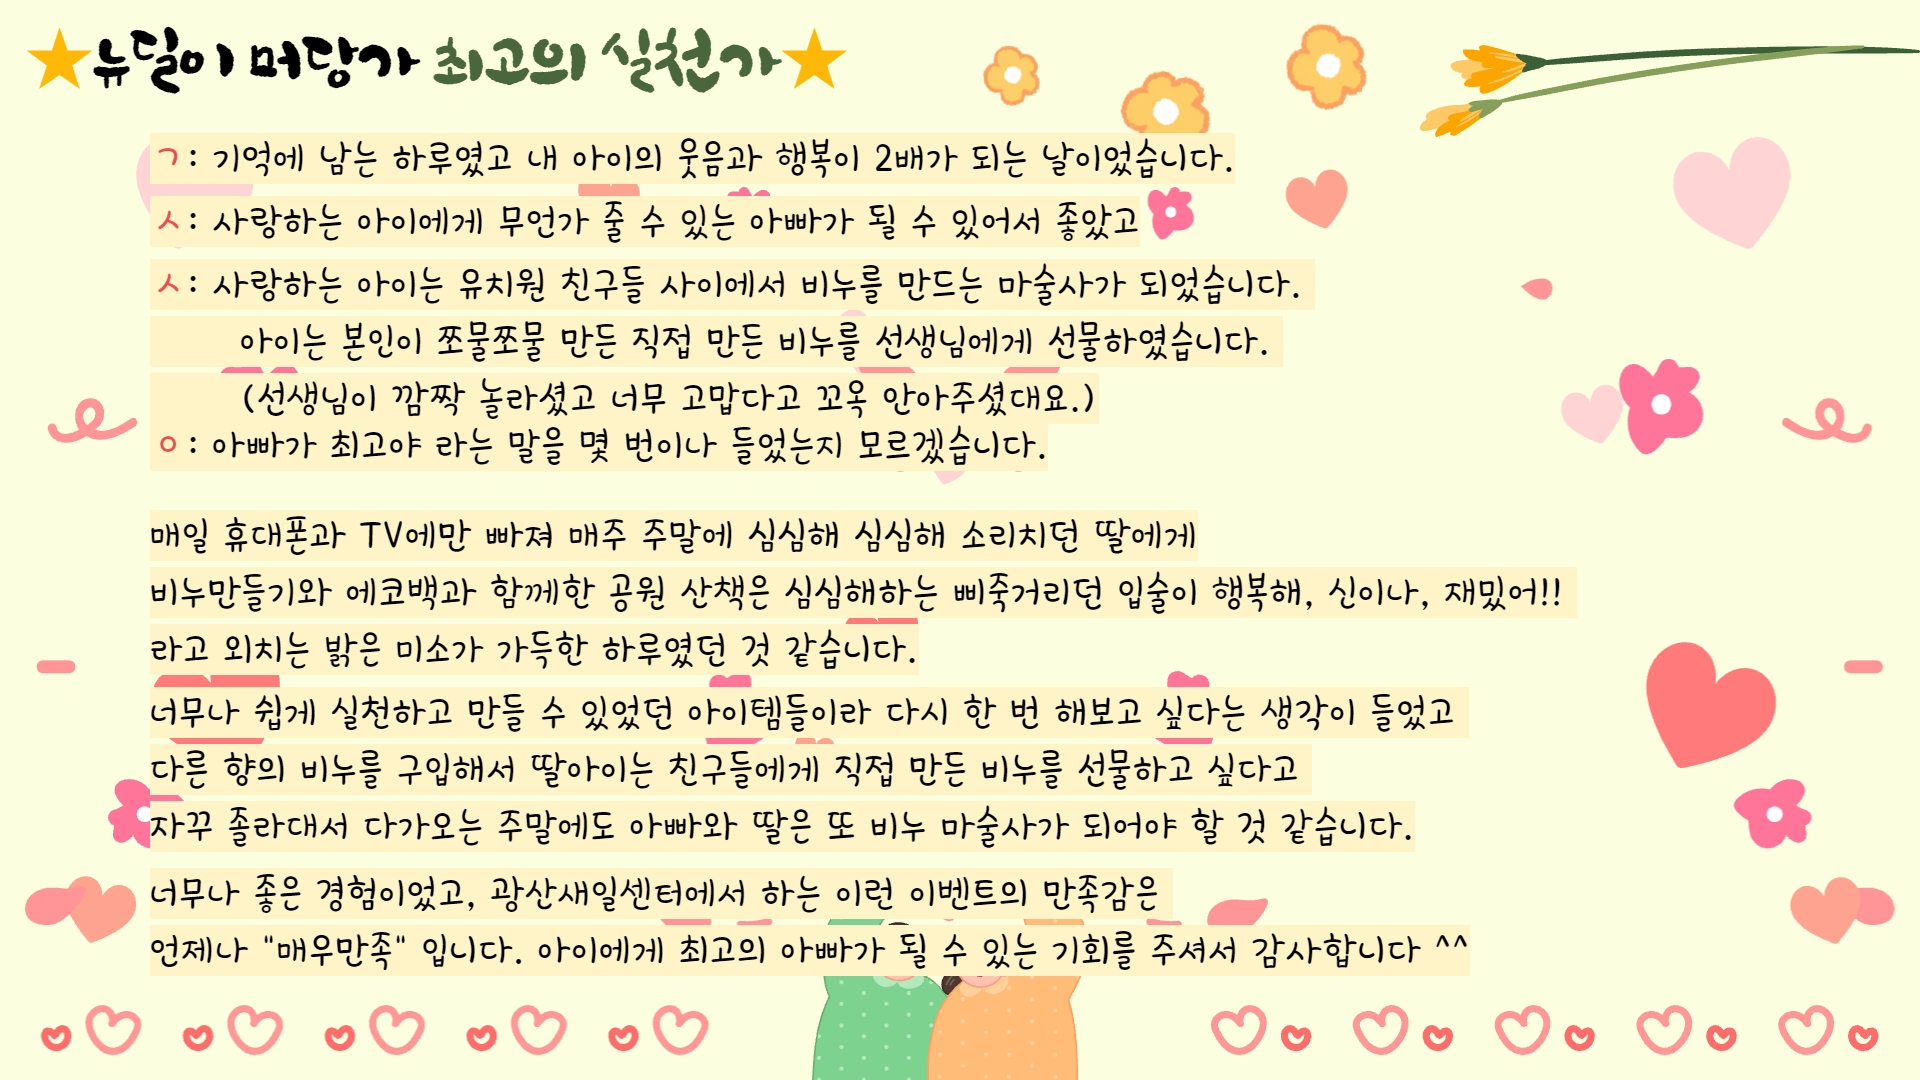 ★뉴딜이 머당가 최고의 실천가★
ㄱ: 기억에 남는 하루였고 내 아이의 웃음과 행복이 2배가 되는 날이었습니다.
ㅅ: 사랑하는 아이에게 무언가 줄 수 있는 아빠가 될 수 있어서 좋았고
ㅅ: 사랑하는 아이는 유치원 친구들 사이에서 비누를 만드는 마술사가 되었습니다.
아이는 본인이 쪼물쪼물 만든 직접 만든 비누를 선생님에게 선물하였습니다.
(선생님이 깜짝 놀라셨고 너무 고맙다고 꼬옥 안아주셨대요.)
ㅇ: 아빠가 최고야 라는 말을 몇 번이나 들었는지 모르겠습니다.
매일 휴대폰과 TV에만 빠져 매주 주말에 심심해 심심해 소리치던 딸에게
비누만들기와 에코백과 함께한 공원 산책은 심심해하는 삐죽거리던 입술이 행복해, 신이나, 재밌어!!
라고 외치는 밝은 미소가 가득한 하루였던 것 같습니다.
너무나 쉽게 실천하고 만들 수 있었던 아이템들이라 다시 한 번 해보고 싶다는 생각이 들었고
다른 향의 비누를 구입해서 딸아이는 친구들에게 직접 만든 비누를 선물하고 싶다고
자꾸 졸라대서 다가오는 주말에도 아빠와 딸은 또 비누 마술사가 되어야 할 것 같습니다.
너무나 좋은 경험이었고, 광산새일센터에서 하는 이런 이벤트의 만족감은
언제나 "매우만족" 입니다. 아이에게 최고의 아빠가 될 수 있는 기회를 주셔서 감사합니다 ^^